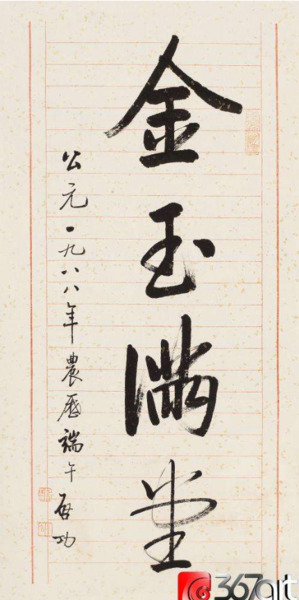 金玉滿堂
公元一九八八年農歷端午 啓功
367art